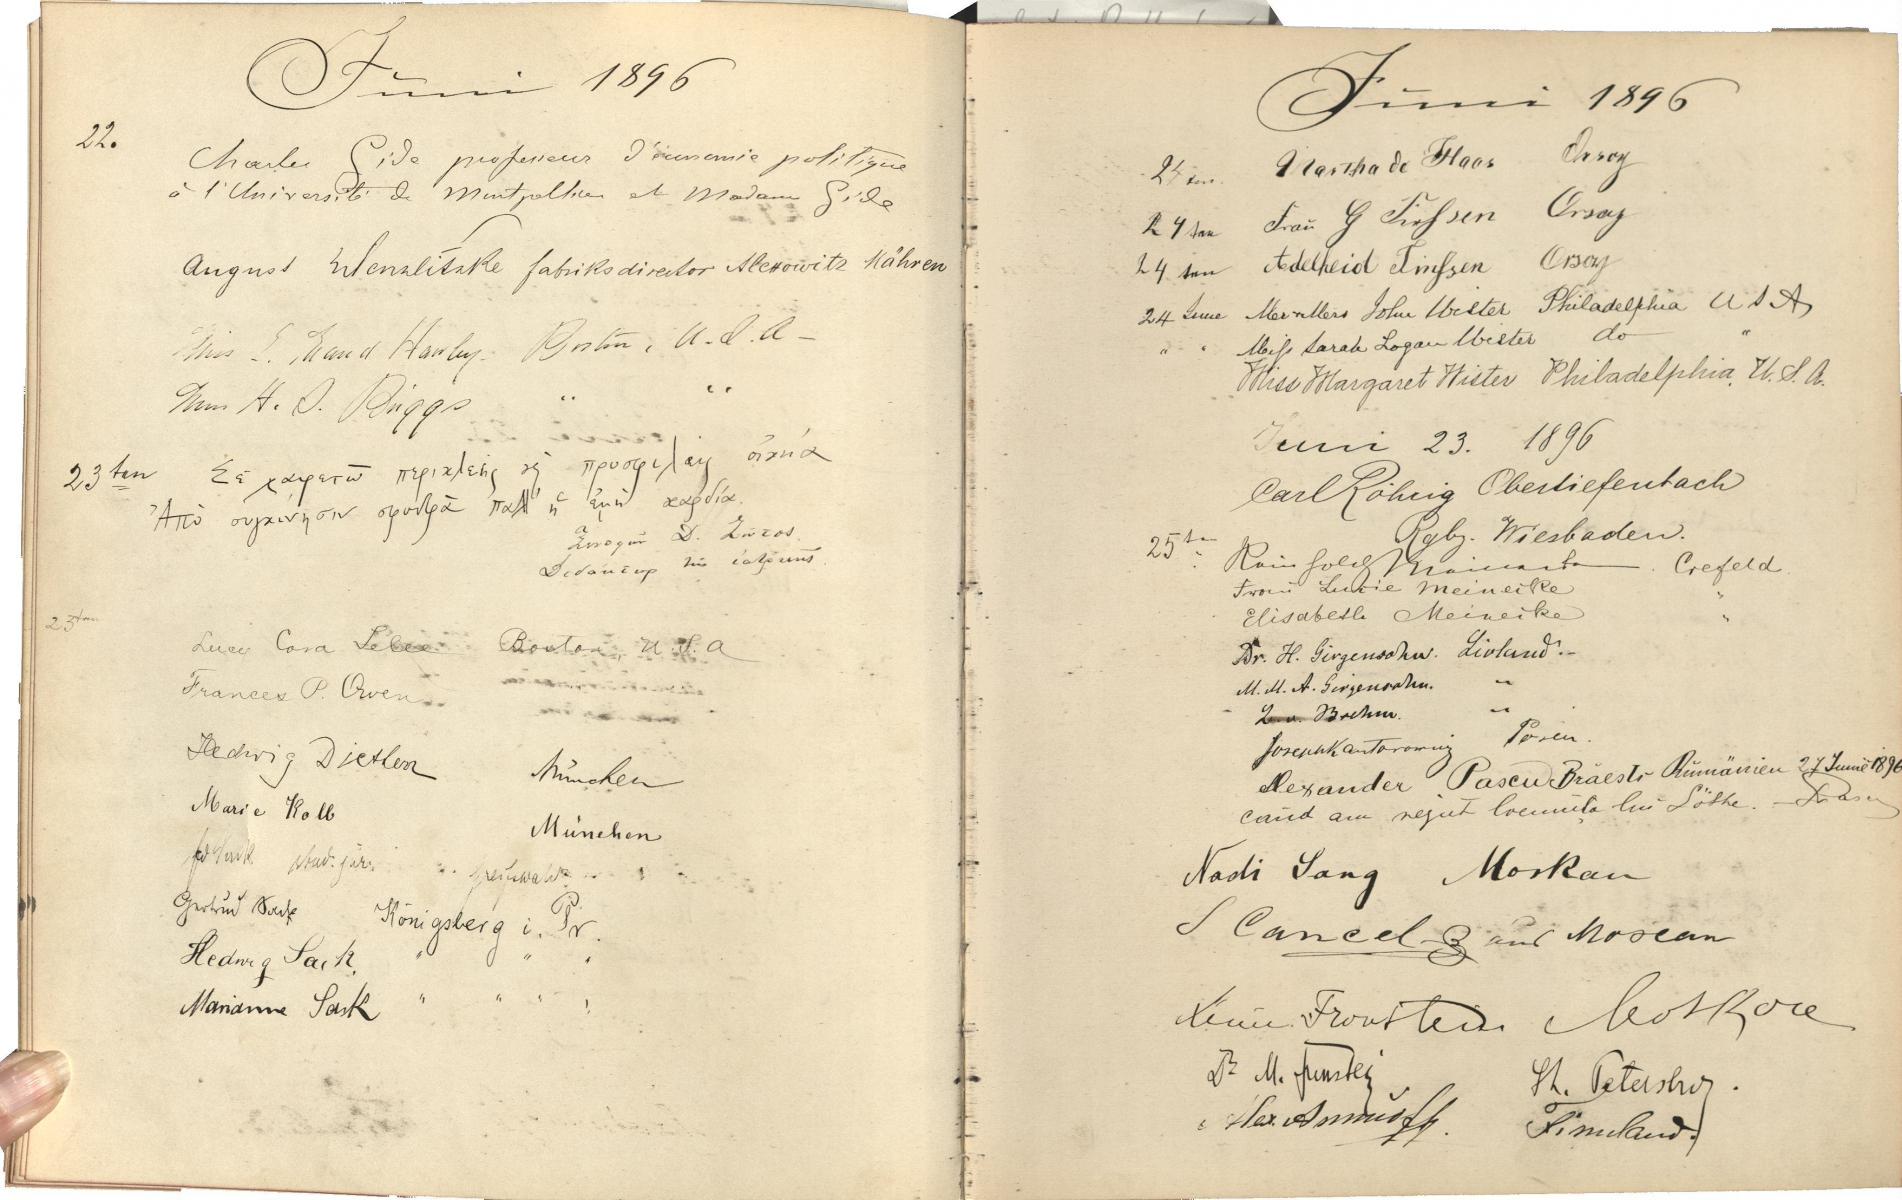 Juni 1896
22.
Charles Gide professeur d'économie politique
à l'Université de Montpellier et Madame Gide
August fabriksdirector Alexowitz Mähren
Miss E. Maud Hanly. Boston, U.S.A –
H. S. Briggs " "
23ten Σὲ χαιρετῶ περικλεὴς κὴ προσφιλὴς οἰκία
Ἀπὸ συγκίνησιν σφοδρὰ ἡ ἐμὴ καρδία.
Δ.
τῆς ἰατρικῆς
23ten
Cora Boston, U.S.A
Frances P. Owen
Hedwig Dietlen München
Marie Kolb München
stud. jur.
Gertrud Sack Königsberg i. Pr.
Hedwig Sack, " " "
Marianne Sack " " " "
Juni 1896
24ten. Martha de Haas Orsoy
24ten Frau G Tinſsen Orsoy
24ten Adelheid Tinſsen Orsoy
24 June Mr & Mrs John Wister Philadelphia U S A
" " Miſs Sarah Logan Wister do "
Miss Margaret Wister Philadelphia, U.S.A.
Juni 23. 1896
Carl Röhrig Obertiefenbach
Rgbz. Wiesbaden.
25ten Reinhold Meineke Crefeld
Frau Lucie Meineike "
Elisabeth Meineike "
Dr. H. Girgensohn. Livland. –
M. M. A. Girgensohn. "
Brehm. "
Joseph Kantorowicz Posen.
Alexander Pascu Brăesti Rumänien 27 Junie 1896
cand am locuința lui Göthe.
Nadi Lang Moskau
S Cancel aus Moscau
Fronstein Moskau
Dr M. St. Petersburg.
Alex. Finnland.